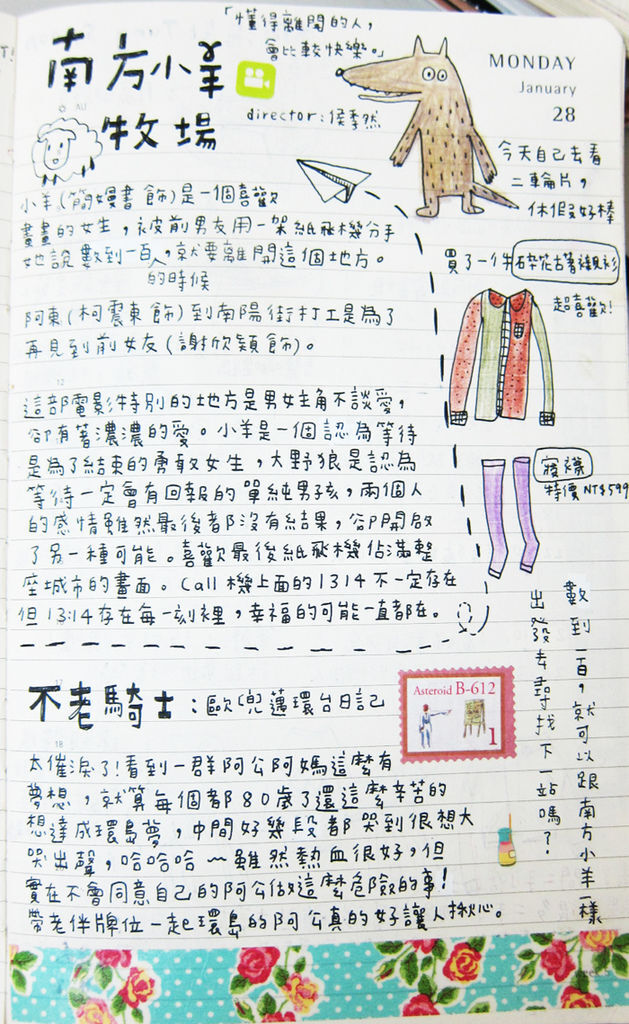 「懂得離開的人，
會比較快樂。」
南方小羊
牧場
director：侯季然
MONDAY
January
28
今天自己去看
二輪片，
休假好棒
小羊(簡嫚書 飾)是一個喜歡
畫畫的女生，被前男友用一架紙飛機分手
她說數到一百，就要離開這個地方。
的時候
阿東(柯震東 飾)到南陽街打工是為了
再見到前女友(謝欣穎 飾)。
買了一件碎花古著襯衫
超喜歡！
這部電影特別的地方是男女主角不談愛，
卻有著濃濃的愛。小羊是一個認為等待
是為了結束的勇敢女生，大野狼是認為
等待一定會有回報的單純男孩，兩個人
的感情雖然最後都沒有結果，卻開啟
了另一種可能。喜歡最後紙飛機佔滿整
座城市的畫面。Call機上面的1314不一定存在
但13:14存在每一刻裡，幸福的可能一直都在。
寢襪
特價 NT$599
數到一百，就可以跟南方小羊一樣
出發去尋找下一站嗎？
不老騎士：歐兜邁環台日記
Asteroid B-612
1
太催淚了！看到一群阿公阿媽這麼有
夢想，就算每個都80歲了還這麼辛苦的
想達成環島夢，中間好幾段都哭到很想大
哭出聲，哈哈哈～雖然熱血很好，但
實在不會同意自己的阿公做這麼危險的事！
帶老伴牌位一起環島的阿公真的好讓人揪心。